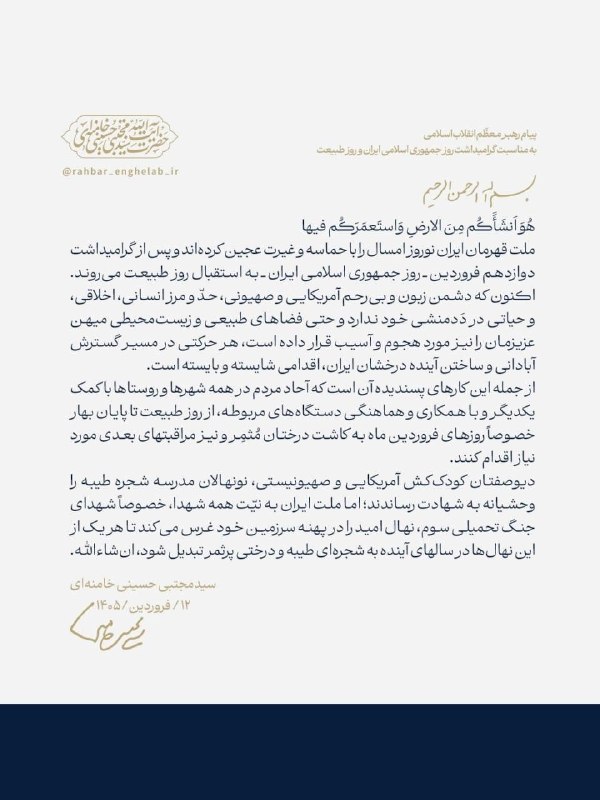 حضرت آیت‌الله سید مجتبی حسینی خامنه‌ای
@rahbar_enghelab_ir
پیام رهبر معظّم انقلاب اسلامی
به مناسبت گرامیداشت روز جمهوری اسلامی ایران و روز طبیعت
بسم الله الرحمن الرحیم
هُوَ اَنشَأَکُم مِنَ الارضِ وَاستَعمَرَکُم فیها
ملت قهرمان ایران نوروز امسال را با حماسه و غیرت عجین کرده‌اند و پس از گرامیداشت
دوازدهم فروردین ـ روز جمهوری اسلامی ایران ـ به استقبال روز طبیعت می‌روند.
اکنون که دشمن زبون و بی‌رحم آمریکایی و صهیونی، حدّ و مرز انسانی، اخلاقی،
و حیاتی در دَدمنشی خود ندارد و حتی فضاهای طبیعی و زیست‌محیطی میهن
عزیزمان را نیز مورد هجوم و آسیب قرار داده است، هر حرکتی در مسیر گسترش
آبادانی و ساختن آینده درخشان ایران، اقدامی شایسته و بایسته است.
از جمله این کارهای پسندیده آن است که آحاد مردم در همه شهرها و روستاها با کمک
یکدیگر و با همکاری و هماهنگی دستگاه‌های مربوطه، از روز طبیعت تا پایان بهار
خصوصاً روزهای فروردین ماه به کاشت درختان مُثمِر و نیز مراقبتهای بعدی مورد
نیاز اقدام کنند.
دیوصفتان کودک‌کش آمریکایی و صهیونیستی، نونهالان مدرسه شجره طیبه را
وحشیانه به شهادت رساندند؛ اما ملت ایران به نیّت همه شهدا، خصوصاً شهدای
جنگ تحمیلی سوم، نهال امید را در پهنه سرزمین خود غرس می‌کند تا هر یک از
این نهال‌ها در سالهای آینده به شجره‌ای طیبه و درختی پرثمر تبدیل شود، ان‌شاءالله.
سیدمجتبی حسینی خامنه‌ای
۱۲/ فروردین/ ۱۴۰۵